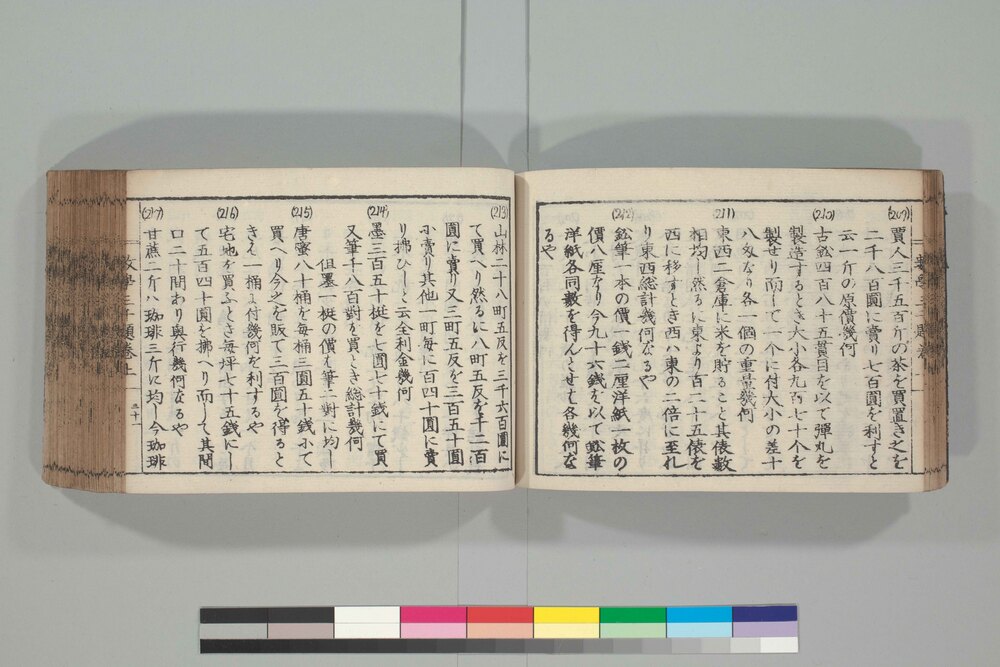 (209)
賈人三千五百斤の茶を買置き之を
二千八百圓に賣り七百圓を利すと
云一斤の原價幾何
(210)
古鉛四百八十五貫目を以て彈丸を
製造するとき大小各九百七十个を
製せり而して一个に付大小の差十
八匁なり各一個の重量幾何
(211)
東西二倉庫に米を貯ること其俵數
相均し然るに東より百二十五俵を
西に移すとき西ハ東の二倍に至れ
り東西総計幾何なるや
(212)
鉛筆一本の價一銭二厘洋紙一枚の
價八厘なり今九十六銭を以て鉛筆
洋紙各同數を得んとせば各幾何な
るや
(213)
山林二十八町五反を三千六百圓に
て買へり然るに八町五反を千二百
圓に賣り又三町五反を三百五十圓
小賣り其他一町毎に百四十圓に賣
り拂ひしと云全利金幾何
(214)
墨三百五十梃を七圓七十銭にて買
又筆千八百對を買とき総計幾何
但墨一梃の價ハ筆二對に均し
(215)
唐蜜八十桶を毎桶三圓五十銭小て
買へり今之を販て三百圓を得ると
き一桶に付幾何を利するや
(216)
宅地を買ふとき毎坪七十五銭にし
て五百四十圓を拂へり而して其間
口二十間わり與行幾何なるや
(217)
甘蔗二斤ハ珈琲三斤に均し今珈琲
數學三千題卷上